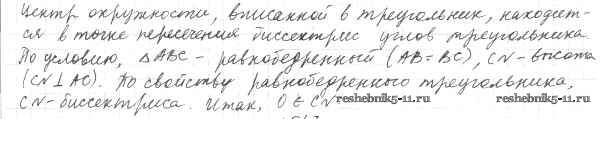 Центр окружности, вписанной в треугольник, находит-
ся в точке пересечения биссектрис углов треугольника.
По условию, ΔABC - равнобедренный (AB=BC), CN-высота
(CN⊥AC). По свойству равнобедренного треугольника,
CN-биссектриса. Итак, O∈CN
reshebnik5-11.ru reshebnik5-11.ru